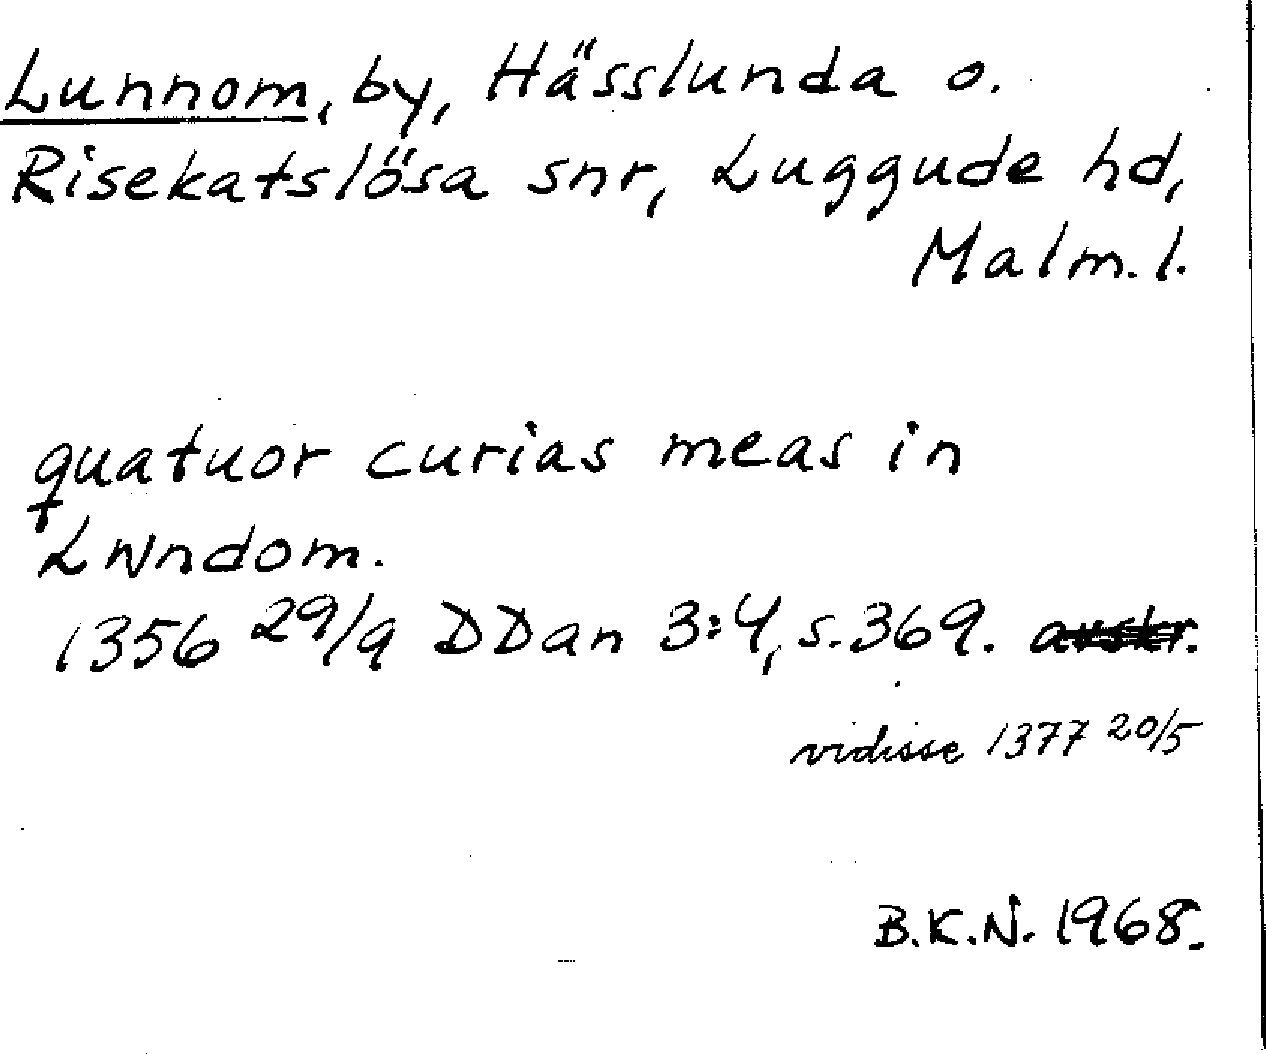 Lunnom, by, Hässlunda o.
Risekatslösa snr, Luggude hd,
Malm. l.
quatuor curias meas in
Lwndom.
1356 29/9 DDan 3:4, s. 369. avskr.
vidisse 1377 20/5
B.K.N. 1968.